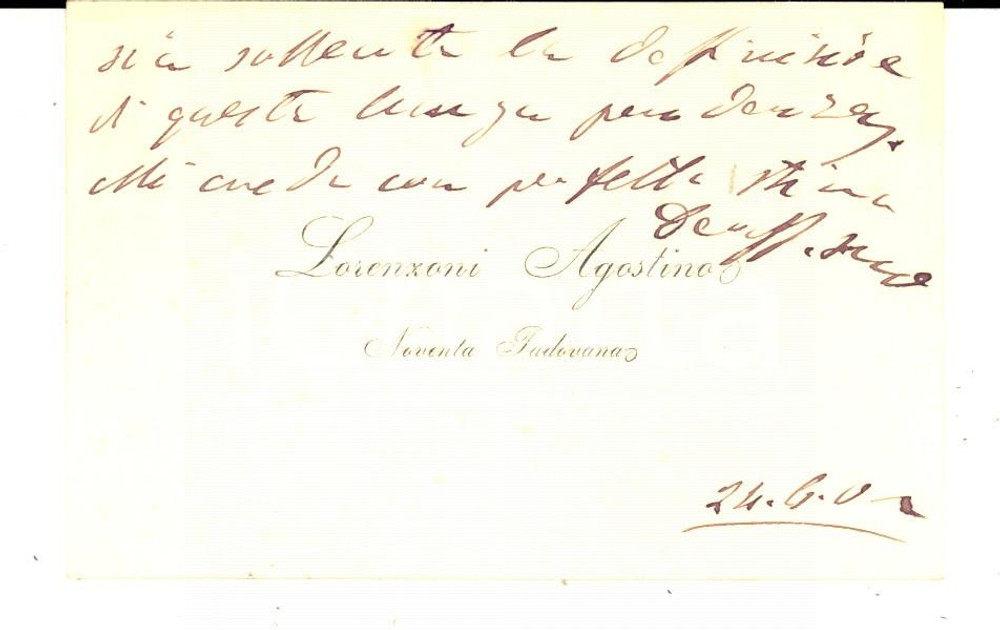 sia sollecita la definizione
di questa lunga pendenza.
Mi creda con perfetta stima
Lorenzoni Agostino
Noventa Padovana
24.6.02